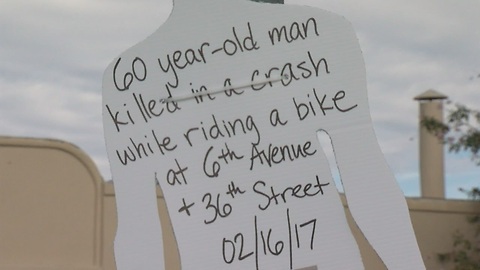 60 year-old man
killed in a crash
while riding a bike
at 6th Avenue
+ 36th Street
02/16/17